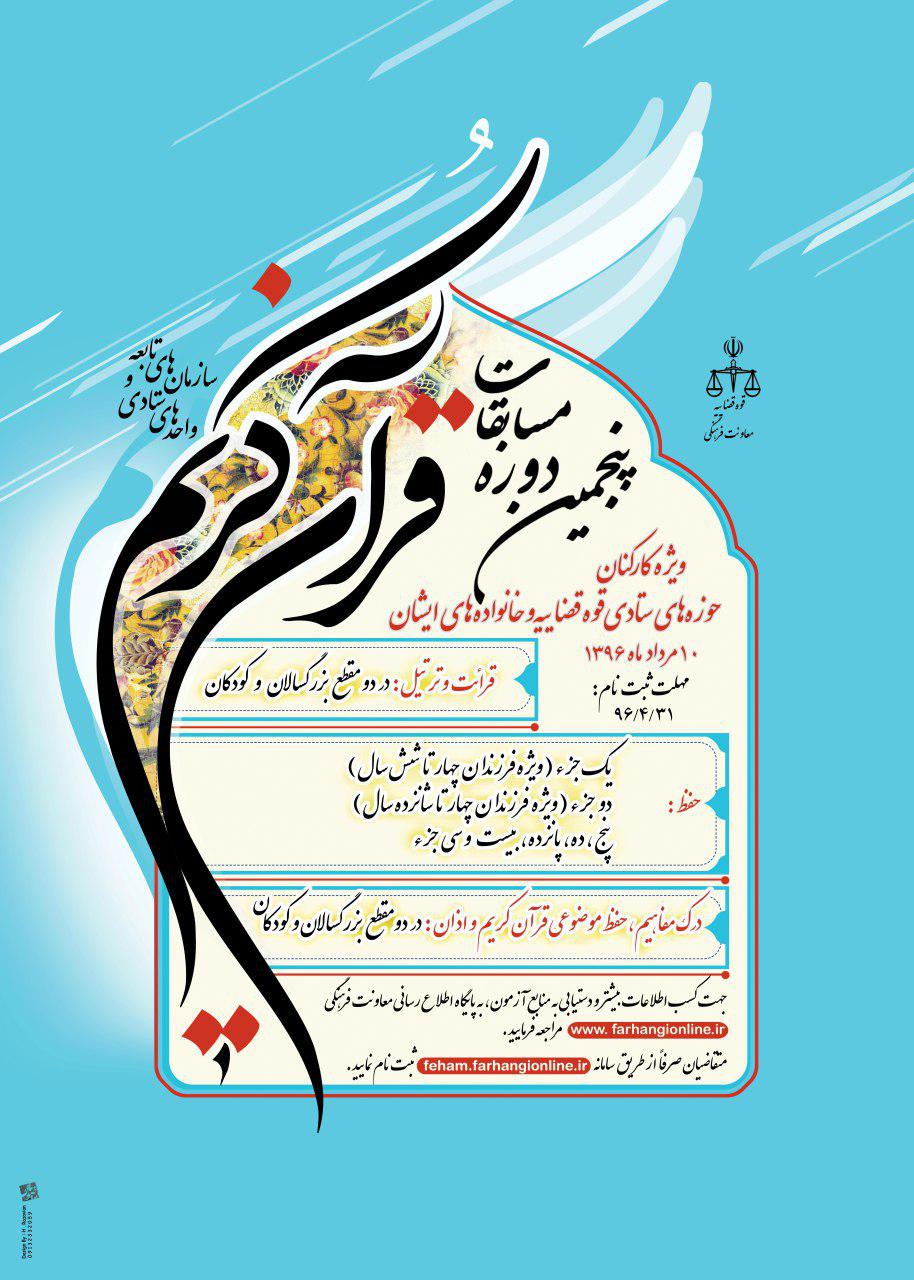 قوه قضاییه
معاونت فرهنگی
پنجمین دوره مسابقات
قرآن کریم
سازمان های تابعه
و
واحدهای ستادی
ویژه کارکنان
حوزه های ستادی قوه قضاییه و خانواده های ایشان
۱۰ مرداد ماه ۱۳۹۶
مهلت ثبت نام:
۹۶/۴/۳۱
قرائت و ترتیل: در دو مقطع بزرگسالان و کودکان
حفظ:
یک جزء (ویژه فرزندان چهار تا شش سال)
دو جزء (ویژه فرزندان چهار تا شانزده سال)
پنج، ده، پانزده، بیست و سی جزء
درک مفاهیم، حفظ موضوعی قرآن کریم و اذان: در دو مقطع بزرگسالان و کودکان
جهت کسب اطلاعات بیشتر و دستیابی به منابع آزمون، به پایگاه اطلاع رسانی معاونت فرهنگی
www. farhangionline.ir مراجعه فرمایید.
متقاضیان صرفاً از طریق سامانه feham.farhangionline.ir ثبت نام نمایید.
Design By : H . Rozavian
09132332059